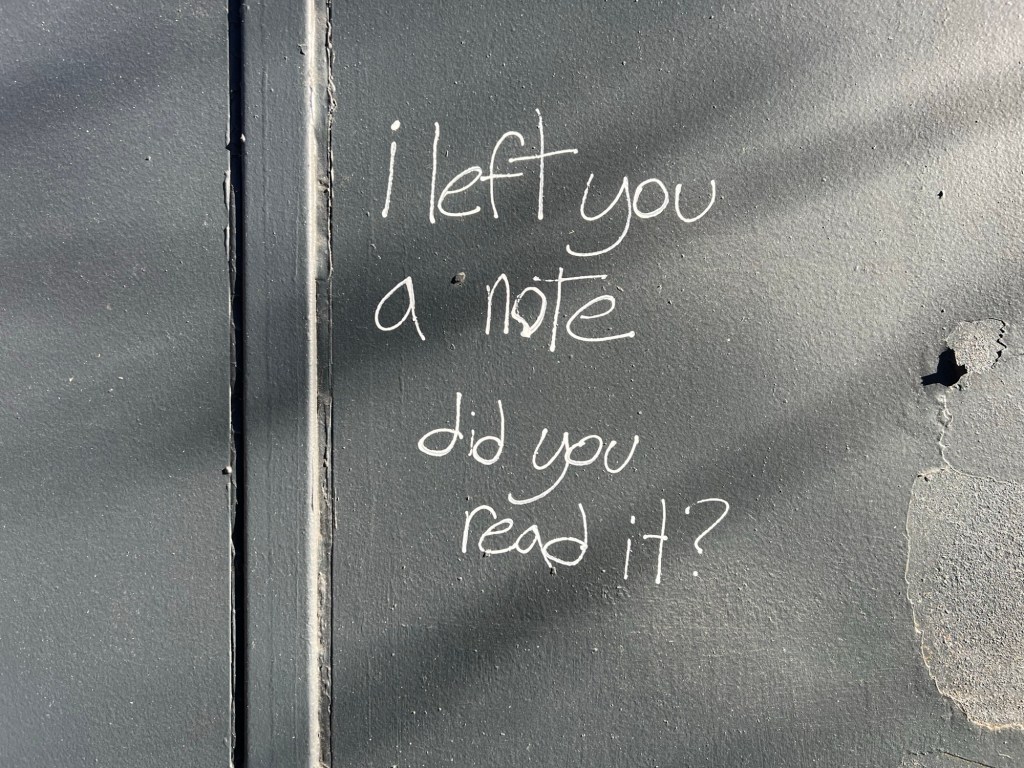 i left you
a note
did you
read it?